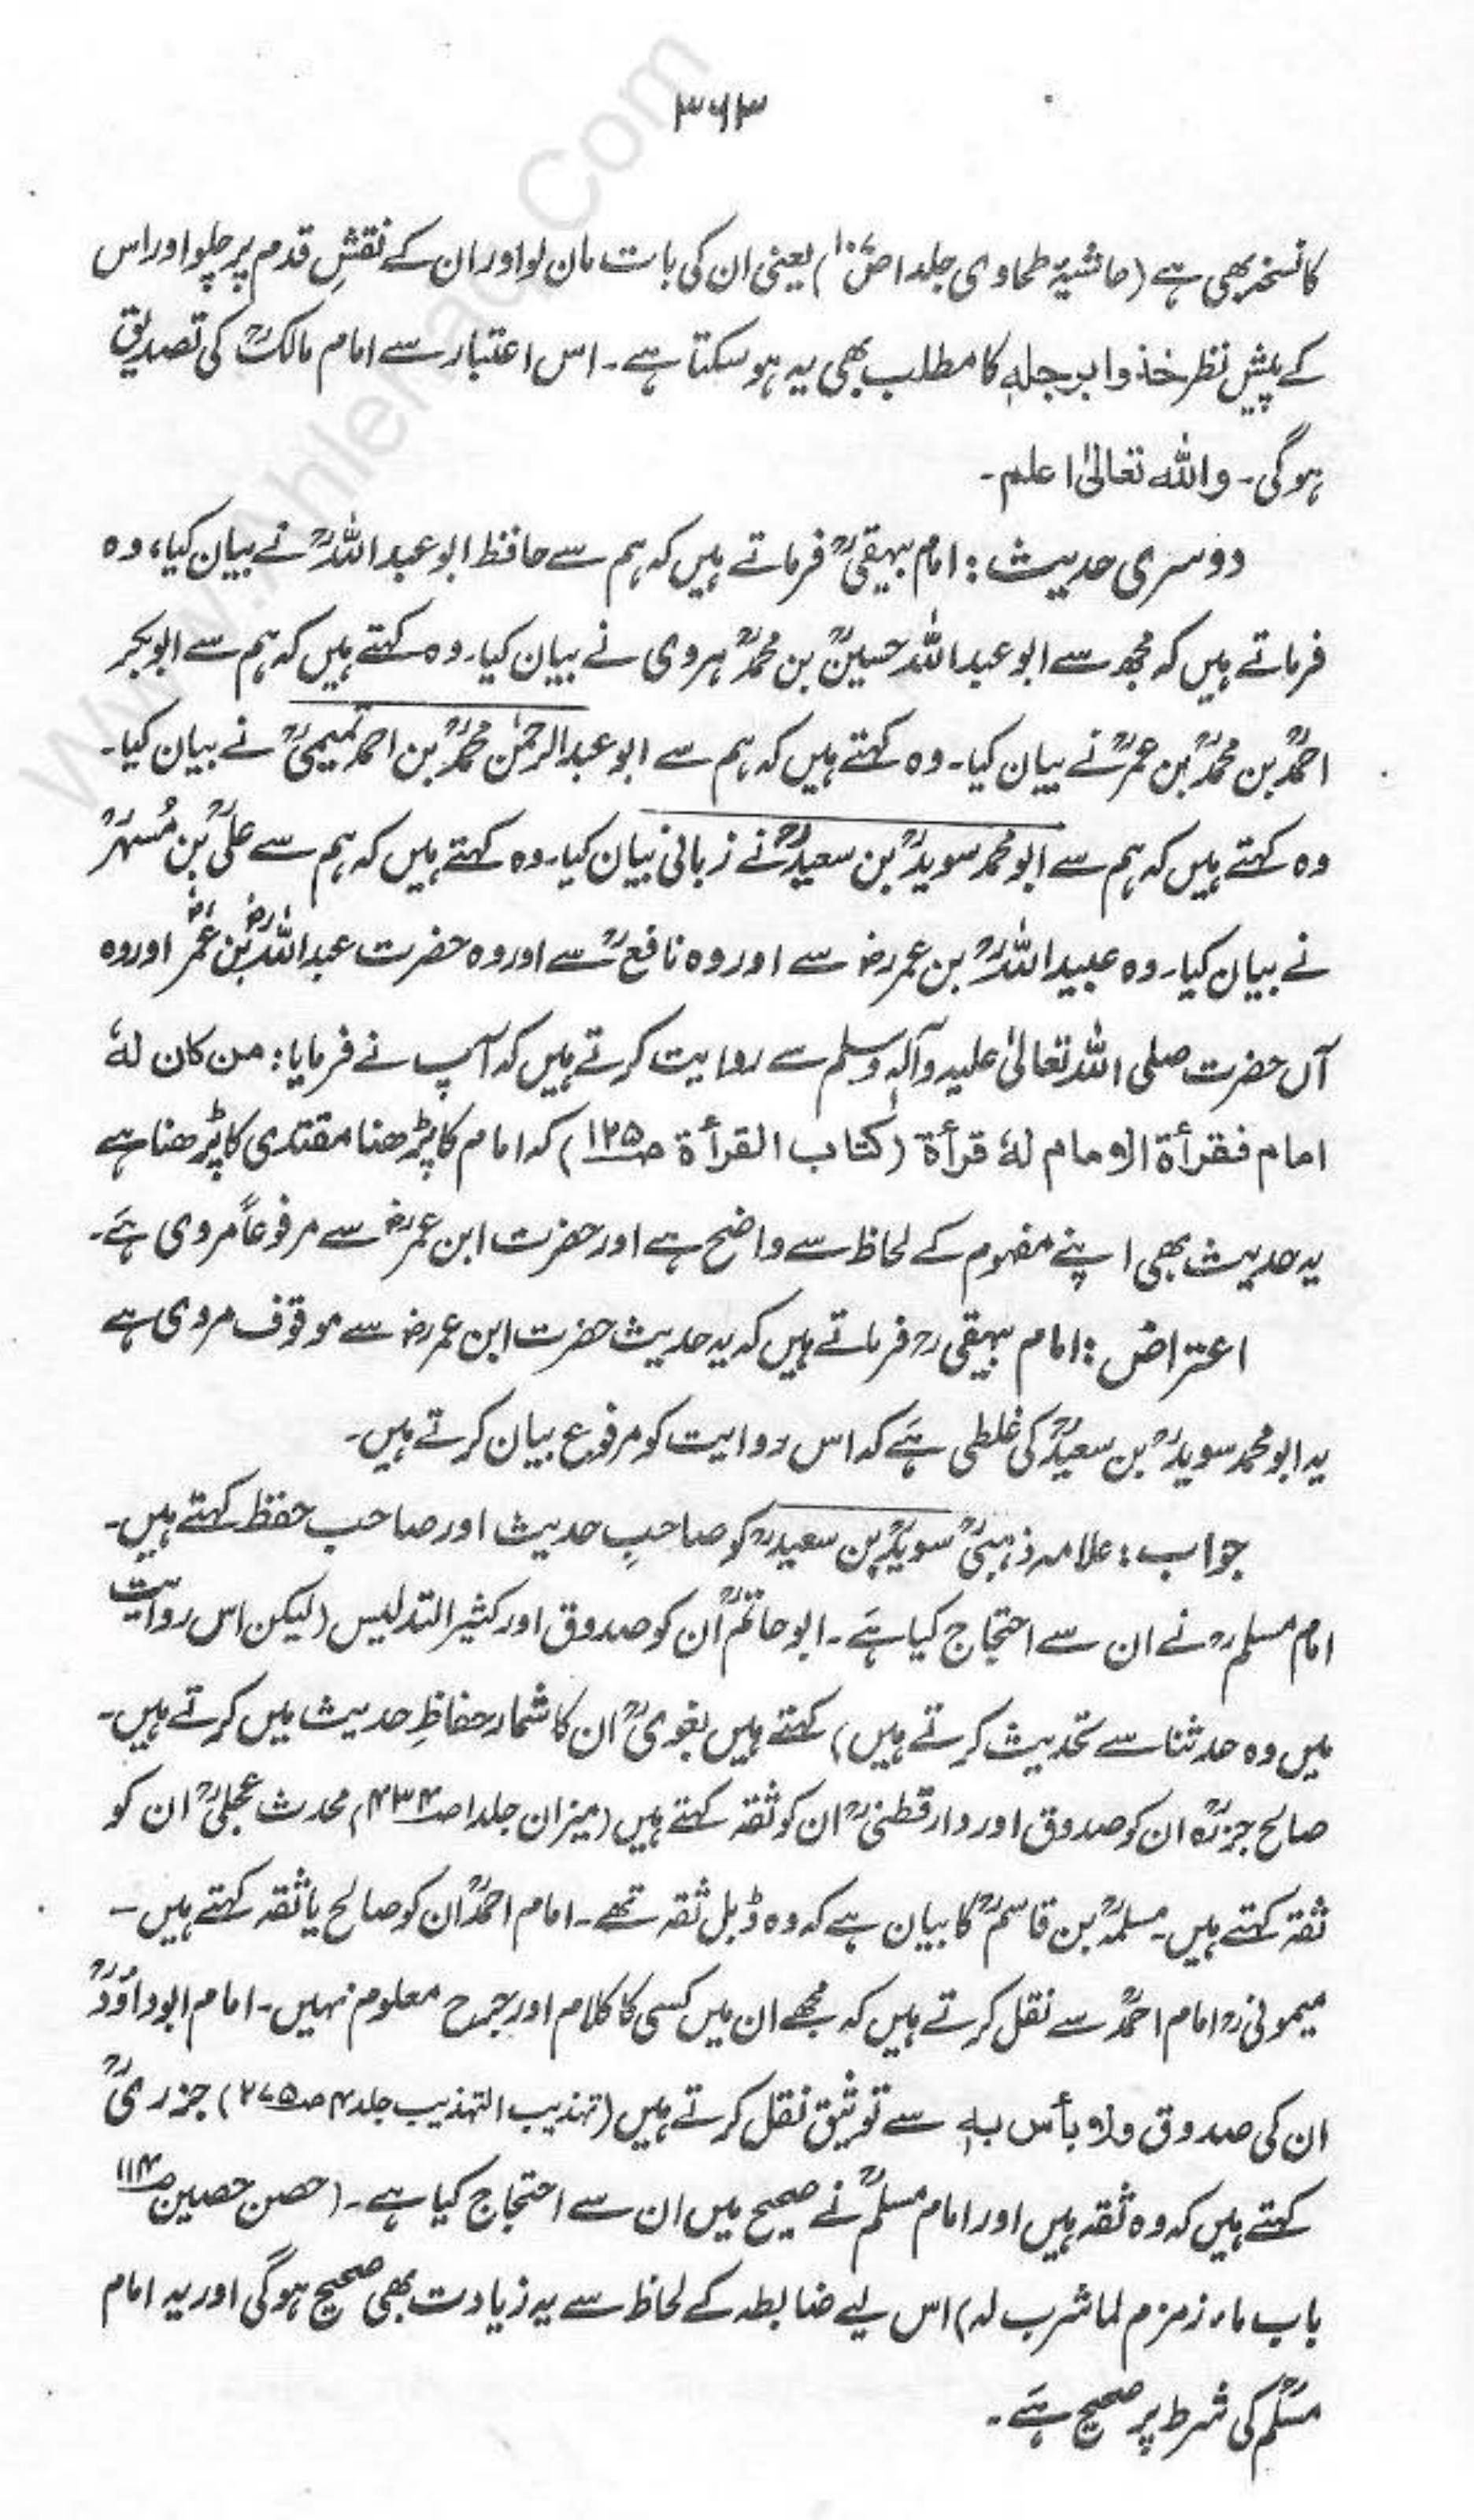 ۳۶۳
کا نسخہ بھی ہے (حاشیۂ طحاوی جلد۱ ص۱۰۷) یعنی ان کی بات مان لو اور ان کے نقشِ قدم پر چلو اور اس
کے پیش نظر خذوا برجلہٖ کا مطلب بھی یہ ہو سکتا ہے۔ اس اعتبار سے امام مالکؒ کی تصدیق
ہوگی۔ واللہ تعالیٰ اعلم۔
دوسری حدیث: امام بیہقیؒ فرماتے ہیں کہ ہم سے حافظ ابو عبد اللہؒ نے بیان کیا، وہ
فرماتے ہیں کہ مجھ سے ابو عبد اللہ حسینؒ بن محمدؒ ہروی نے بیان کیا۔ وہ کہتے ہیں کہ ہم سے ابو بکر
احمدؒ بن محمدؒ بن عمرؒ نے بیان کیا۔ وہ کہتے ہیں کہ ہم سے ابو عبد الرحمٰن محمدؒ بن احمد تمیمیؒ نے بیان کیا۔
وہ کہتے ہیں کہ ہم سے ابو محمد سویدؒ بن سعیدؒ نے زبانی بیان کیا۔ وہ کہتے ہیں کہ ہم سے علیؒ بن مُسہرؒ
نے بیان کیا۔ وہ عبید اللہؒ بن عمررض سے اور وہ نافعؒ سے اور وہ حضرت عبد اللہؓ بن عمرؓ اور وہ
آں حضرت صلی اللہ تعالیٰ علیہ وآلہٖ وسلم سے روایت کرتے ہیں کہ آپ نے فرمایا: من کان لہٗ
امام فقرأۃ الامام لہٗ قرأۃ (کتاب القرأۃ ص۱۲۵) کہ امام کا پڑھنا مقتدی کا پڑھنا ہے
یہ حدیث بھی اپنے مفہوم کے لحاظ سے واضح ہے اور حضرت ابن عمررض سے مرفوعاً مروی ہے۔
اعتراض: امام بیہقی رح فرماتے ہیں کہ یہ حدیث حضرت ابن عمررض سے موقوف مروی ہے
یہ ابو محمد سویدؒ بن سعیدؒ کی غلطی ہے کہ اس روایت کو مرفوع بیان کرتے ہیں۔
جواب: علامہ ذہبیؒ سویدؒ بن سعیدرح کو صاحبِ حدیث اور صاحب حفظ کہتے ہیں۔
امام مسلم رح نے ان سے احتجاج کیا ہے۔ ابو حاتمؒ ان کو صدوق اور کثیر التدلیس (لیکن اس روایت
میں وہ حدثنا سے تحدیث کرتے ہیں) کہتے ہیں بغویؒ ان کا شمار حفاظِ حدیث میں کرتے ہیں۔
صالح جزرہؒ ان کو صدوق اور دارقطنیؒ ان کو ثقہ کہتے ہیں (میزان جلد۱ ص۴۳۴) محدث عجلیؒ ان کو
ثقہ کہتے ہیں۔ مسلمہؒ بن قاسمؒ کا بیان ہے کہ وہ ڈبل ثقہ تھے۔ امام احمدؒ ان کو صالح یا ثقہ کہتے ہیں۔
میمونی رح امام احمدؒ سے نقل کرتے ہیں کہ مجھے ان میں کسی کا کلام اور جرح معلوم نہیں۔ امام ابوداؤدؒ
ان کی صدوق ولا بأس بہٖ سے توثیق نقل کرتے ہیں (تہذیب التہذیب جلد۴ ص۲۷۵) جزریؒ
کہتے ہیں کہ وہ ثقہ ہیں اور امام مسلمؒ نے صحیح میں ان سے احتجاج کیا ہے۔ (حصن حصین ص۱۱۴
باب ماء زمزم لما شرب لہ) اس لیے ضابطہ کے لحاظ سے یہ زیادت بھی صحیح ہوگی اور یہ امام
مسلمؒ کی شرط پر صحیح ہے۔